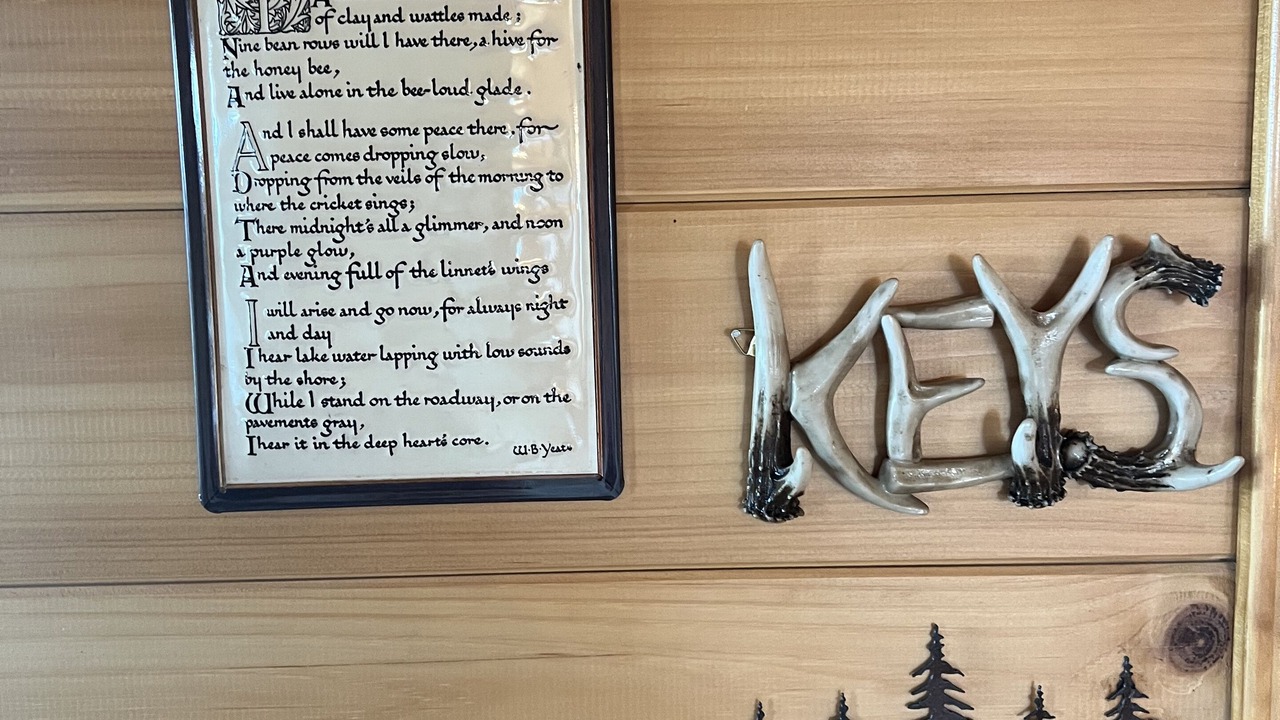 of clay and wattles made;
Nine bean rows will I have there, a hive for
the honey bee,
And live alone in the bee-loud glade.
And I shall have some peace there, for
peace comes dropping slow,
Dropping from the veils of the morning to
where the cricket sings;
There midnight's all a glimmer, and noon
a purple glow,
And evening full of the linnet's wings
I will arise and go now, for always night
and day
I hear lake water lapping with low sounds
by the shore;
While I stand on the roadway, or on the
pavements gray,
I hear it in the deep heart's core.
W.B. Yeats
KEYS